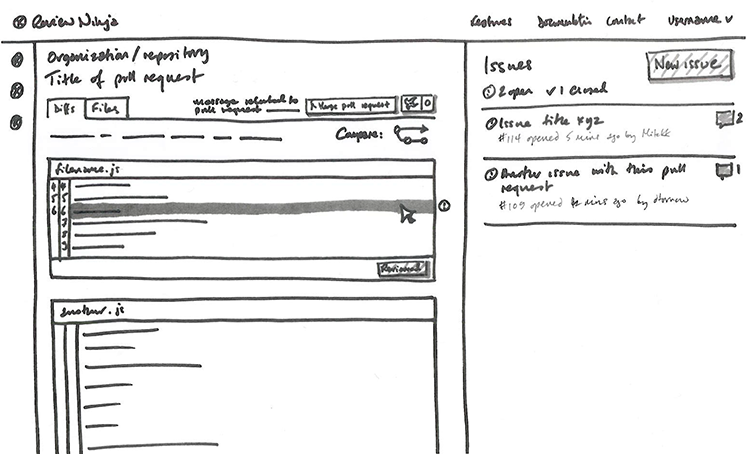 Review Ninja
Features Documentation Contact Username v
Organization/repository
Title of pull request
Diffs Files
message related to
pull request
Merge pull request
0
Compare:
Filename.js
4 4
5 5
6 6
7
8
9
Reviewed
Another.js
Issues
New issue
2 open ✓ 1 closed
Issue title xyz
2
#114 opened 5 mins ago by
Another issue with this pull
request
1
#109 opened mins ago by